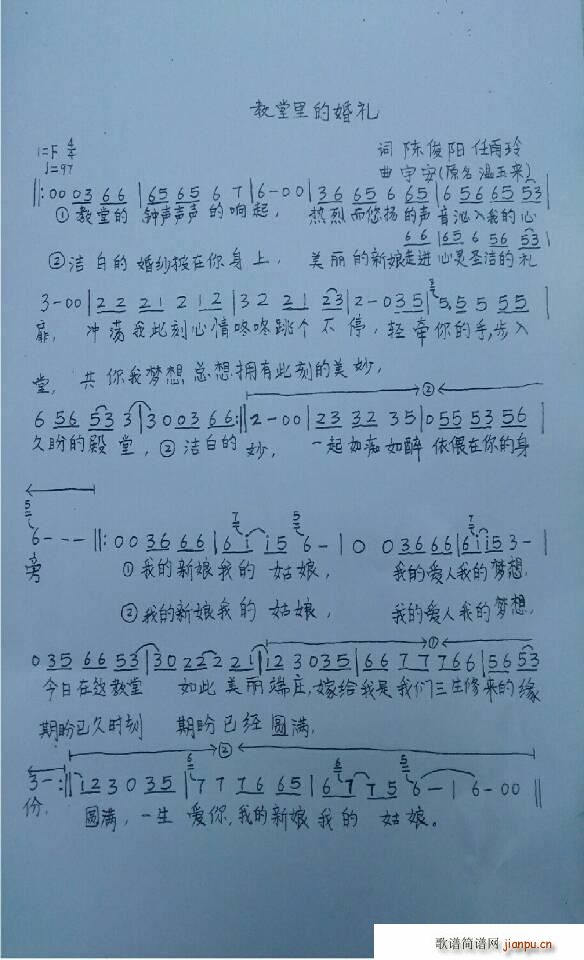 教堂里的婚礼
1=F 4/4
♩=97
词 陈俊阳 任雨玲
曲 宇安(原名温玉来)
‖: 00 03 66 | 65 65 6 7 | 6-00 | 36 65 6 65 | 6 56 65 53
①教堂的 钟声声声的响起, 热烈而悠扬的声音沁入我的心
66 | 65 6 56 53
②洁白的婚纱披在你身上, 美丽的新娘走进心灵圣洁的礼
3-00 | 22 21 2 12 | 32 22 21 23 | 2-0 35 | 5. 5 55 55
扉, 冲荡我此刻心情咚咚跳个不停,轻牵你的手,步入
堂, 共你我梦想总想拥有此刻的美妙,
②
6 56 53 3 | 30 003 66 :‖ 2-00 | 23 32 35 | 0 55 53 56
久盼的殿堂, ②洁白的妙, 一起如痴如醉 依偎在你的身
6--- ‖: 00 36 66 | 6 i i 5 6- | 0 0 36 66 | 6 i i 5 3- |
旁 ①我的新娘我的 姑娘, 我的爱人我的梦想,
②我的新娘我的 姑娘, 我的爱人我的梦想,
①
0 35 66 53 | 30 22 22 21 | 12 30 35 | 66 77 76 6 | 56 53
今日在这教堂 如此美丽端庄,嫁给我是我们三生修来的缘
期盼已久时刻 期盼已经圆满,
②
3-:‖ 12 30 35 | 7 7 76 65 | 6 7 75 6- | 6-00 ‖
份. 圆满,一生 爱你,我的新娘我的 姑娘。
歌谱简谱网 jianpu.cn